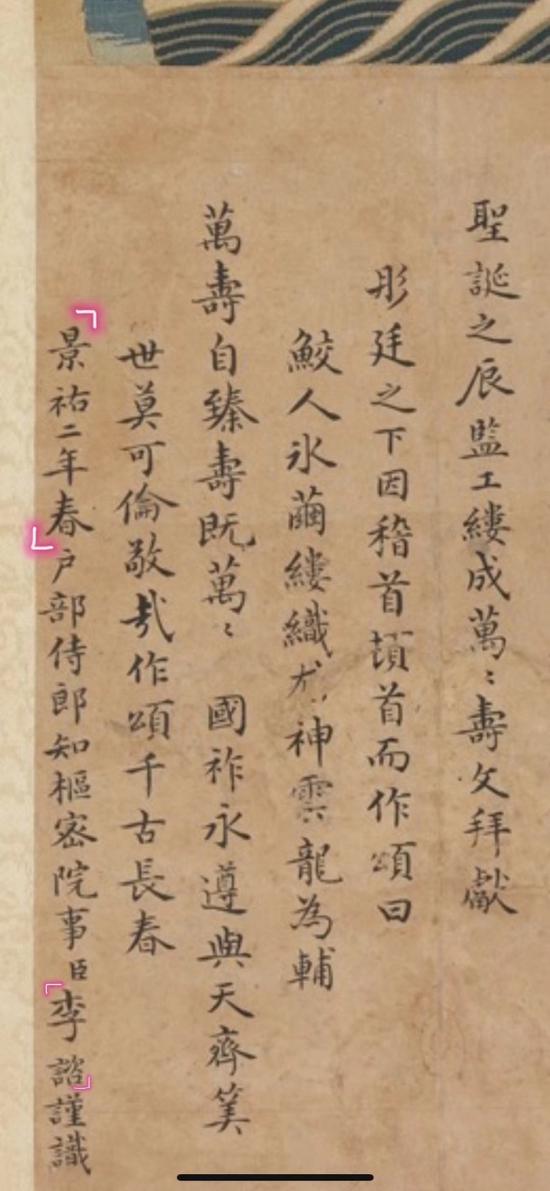 聖誕之辰監工縷成萬〻壽文拜獻
彤廷之下因稽首頓首而作頌曰
鮫人氷繭縷織尤神雲龍為輔
萬壽自臻壽既萬〻國祚永遵與天齊筭
世莫可倫敬哉作頌千古長春
景祐二年春戶部侍郎知樞密院事臣李諮謹識